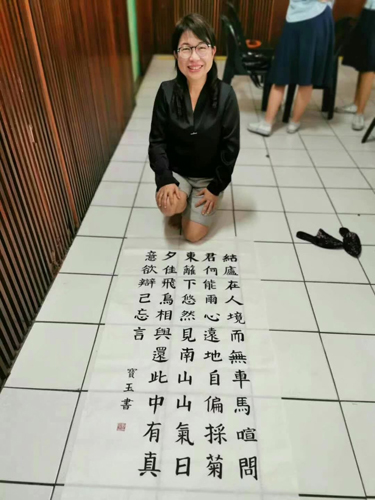 結廬在人境而無車馬喧問
君何能爾心遠地自偏採菊
東籬下悠然見南山山氣日
夕佳飛鳥相與還此中有真
意欲辯己忘言
寶玉書